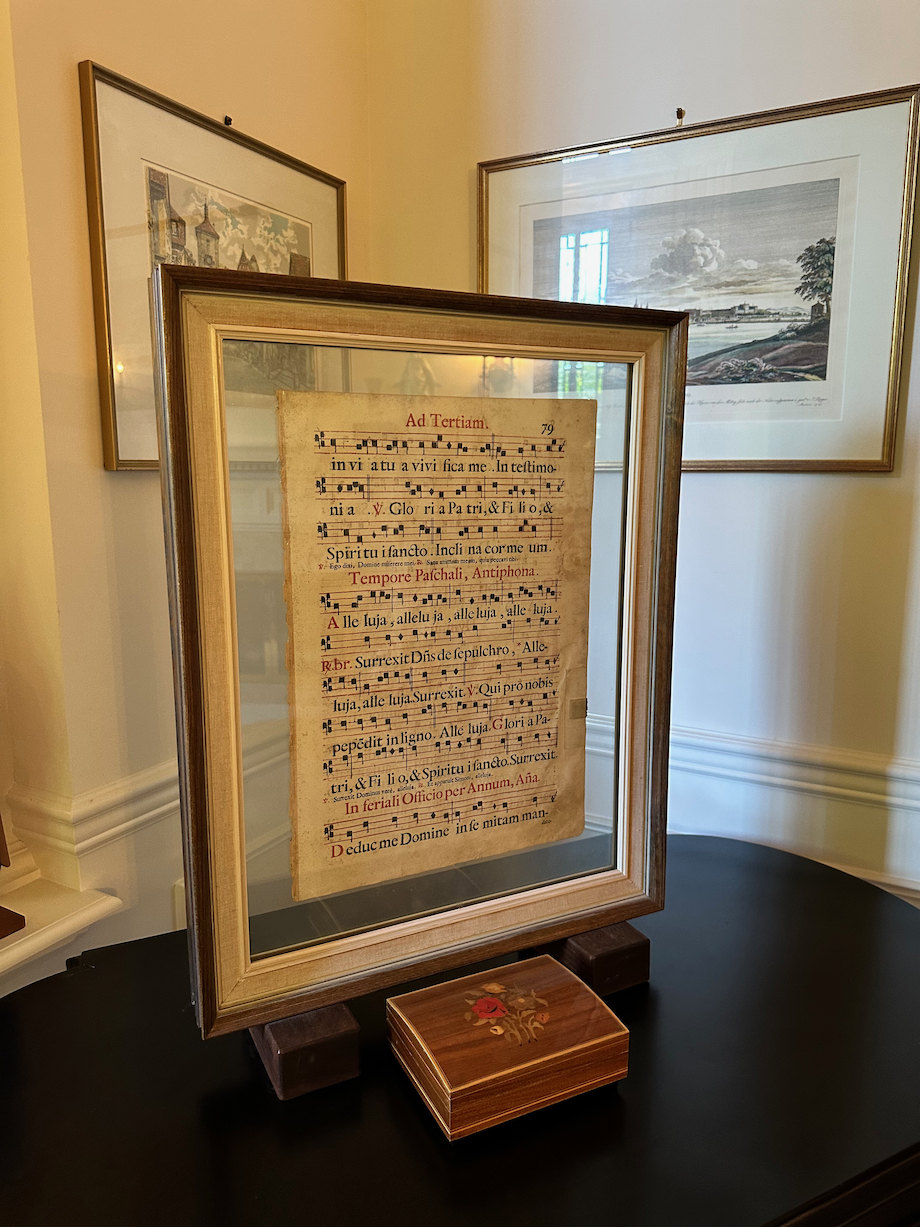 Ad Tertiam. 79
in vi a tu a vivi fica me . In teſtimo-
ni a . ℣. Glo ri a Pa tri, & Fi li o, &
Spiri tu i ſancto . Incli na cor me um .
℣. Ego dixi, Domine miſerere mei. ℟. Sana animam meam, quia peccavi tibi.
Tempore Paſchali, Antiphona.
A lle luja , allelu ja , alle luja , alle luja .
℟.br. Surrexit Dn̄s de ſepulchro , * Alle-
luja, alle luja. Surrexit. ℣. Qui prō nobis
pepēdit in ligno. Alle luja. Glori a Pa-
tri, & Fi li o, & Spiritu i ſancto. Surrexit.
℣. Surrexit Dominus vere, alleluja. ℟. Et apparuit Simoni, alleluja.
In feriali Officio per Annum, Aña.
D educ me Domine in ſe mitam man-